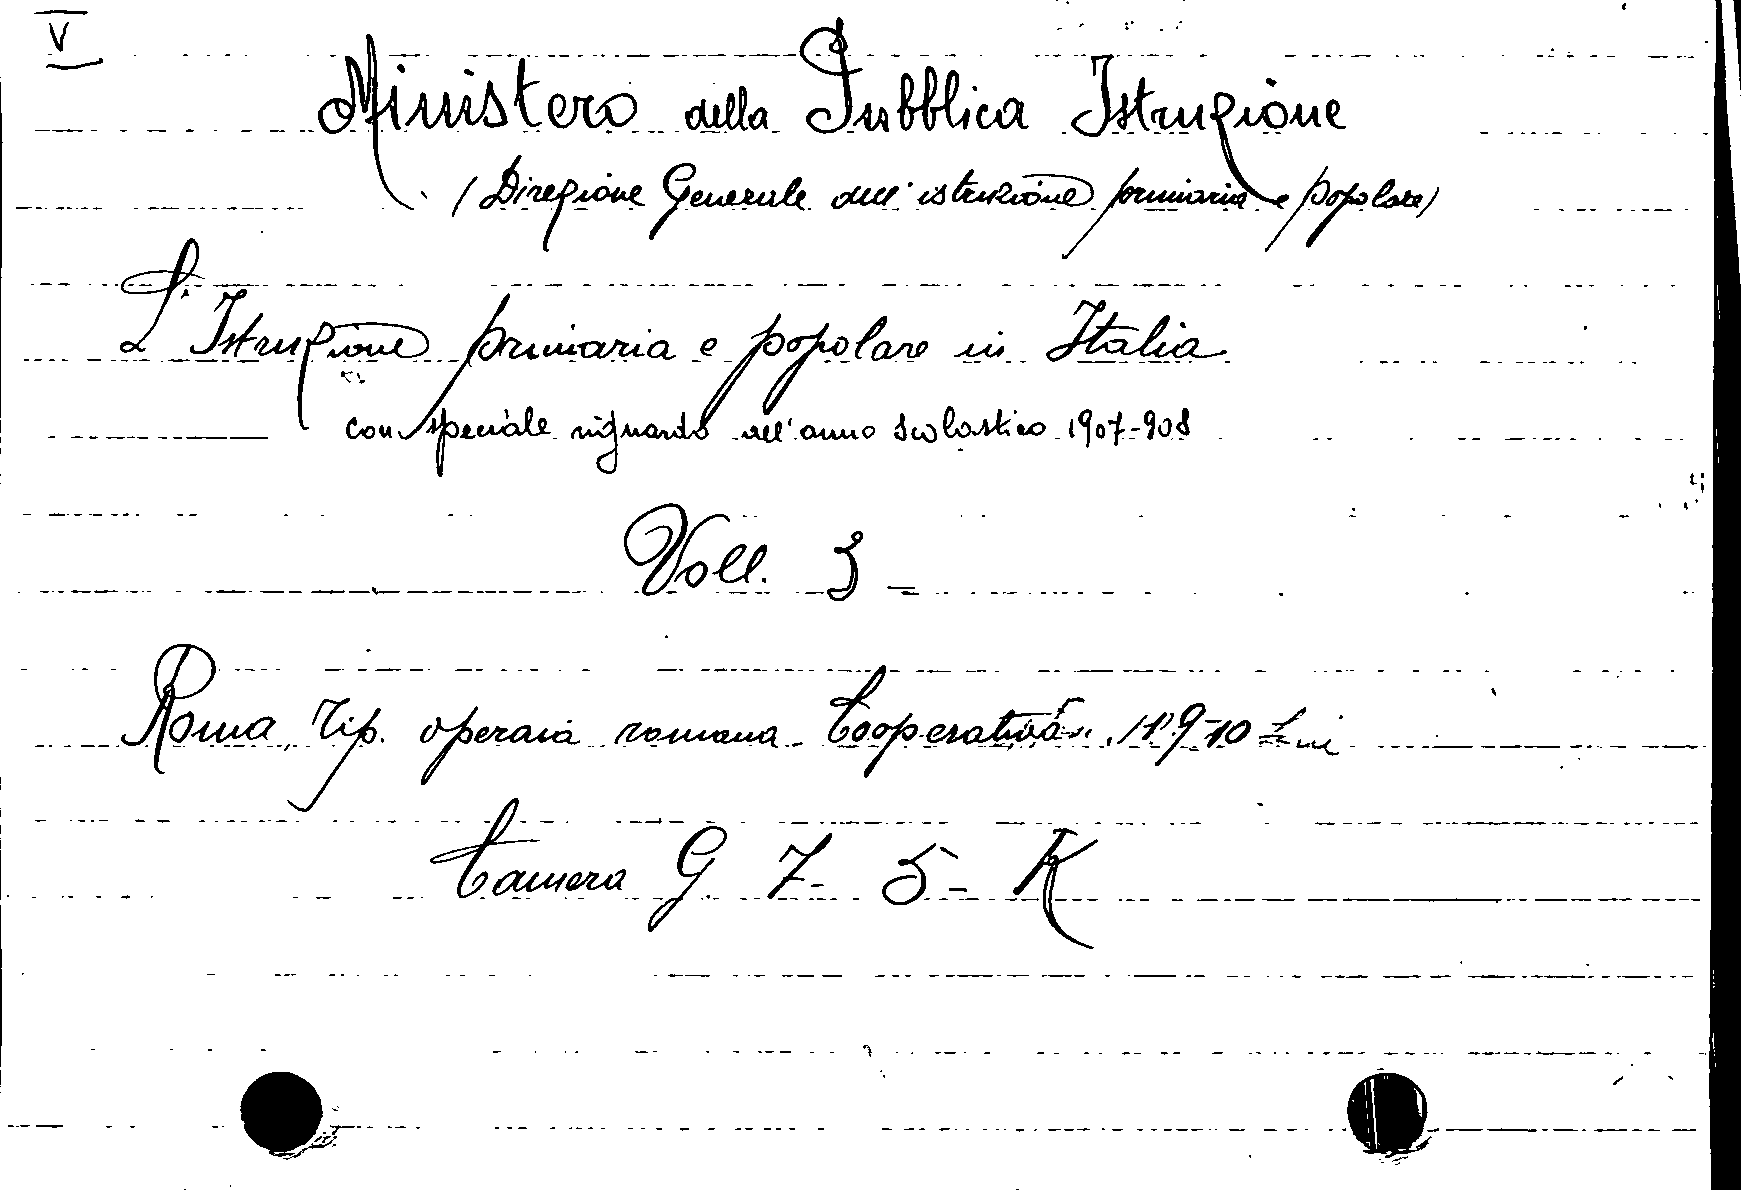 V
Ministero della Pubblica Istruzione
(Direzione Generale dell'istruzione primaria e popolare)
L'Istruzione primaria e popolare in Italia
con speciale riguardo all'anno scolastico 1907-908
Voll. 3 -
Roma, Tip. operaia romana Cooperativa 1909-10
Camera G. 7 - 5 - K